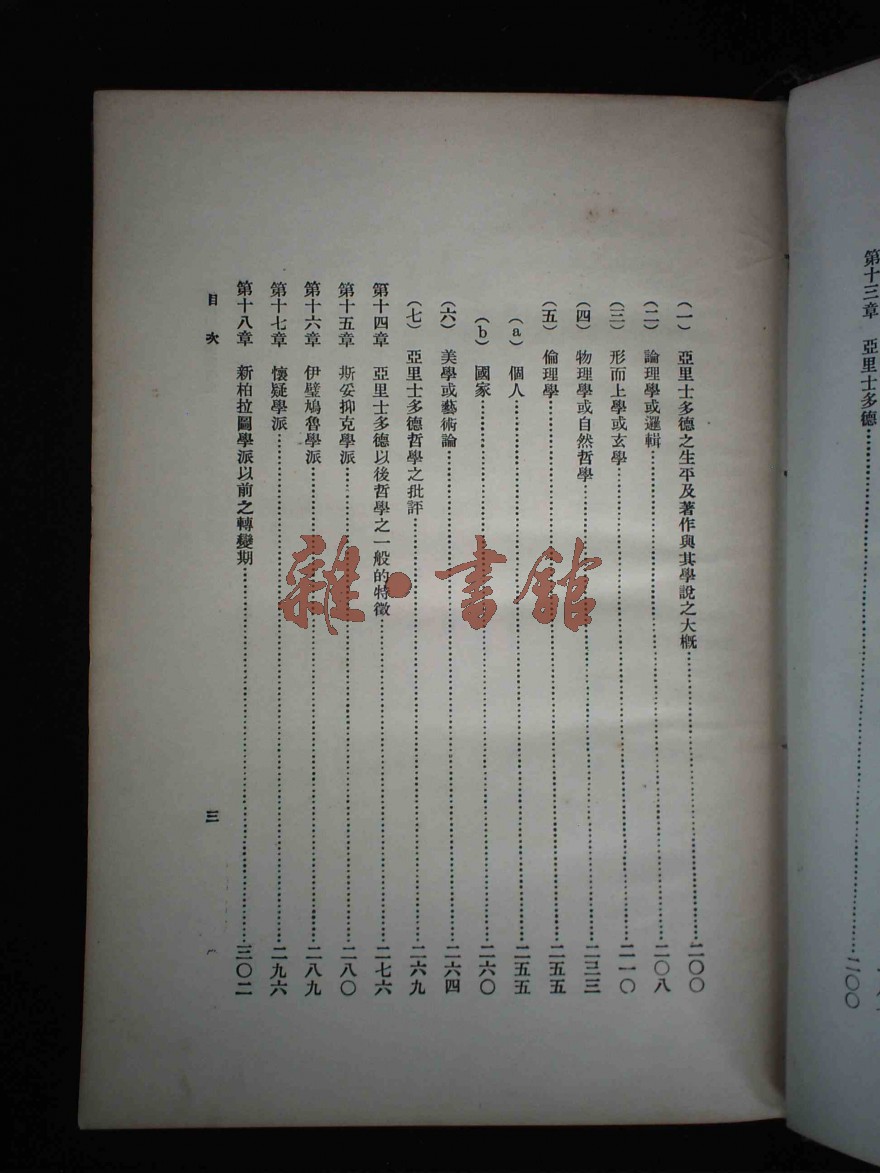 第十三章　亞里士多德……二〇〇
（一）　亞里士多德之生平及著作與其學說之大概……二〇〇
（二）　論理學或邏輯……二〇八
（三）　形而上學或玄學……二一〇
（四）　物理學或自然哲學……二三三
（五）　倫理學……二五五
（a）　個人……二五五
（b）　國家……二六〇
（六）　美學或藝術論……二六四
（七）　亞里士多德哲學之批評……二六九
第十四章　亞里士多德以後哲學之一般的特徵……二七六
第十五章　斯妥抑克學派……二八〇
第十六章　伊壁鳩魯學派……二八九
第十七章　懷疑學派……二九六
第十八章　新柏拉圖學派以前之轉變期……三〇二
目次
三
雜·書館